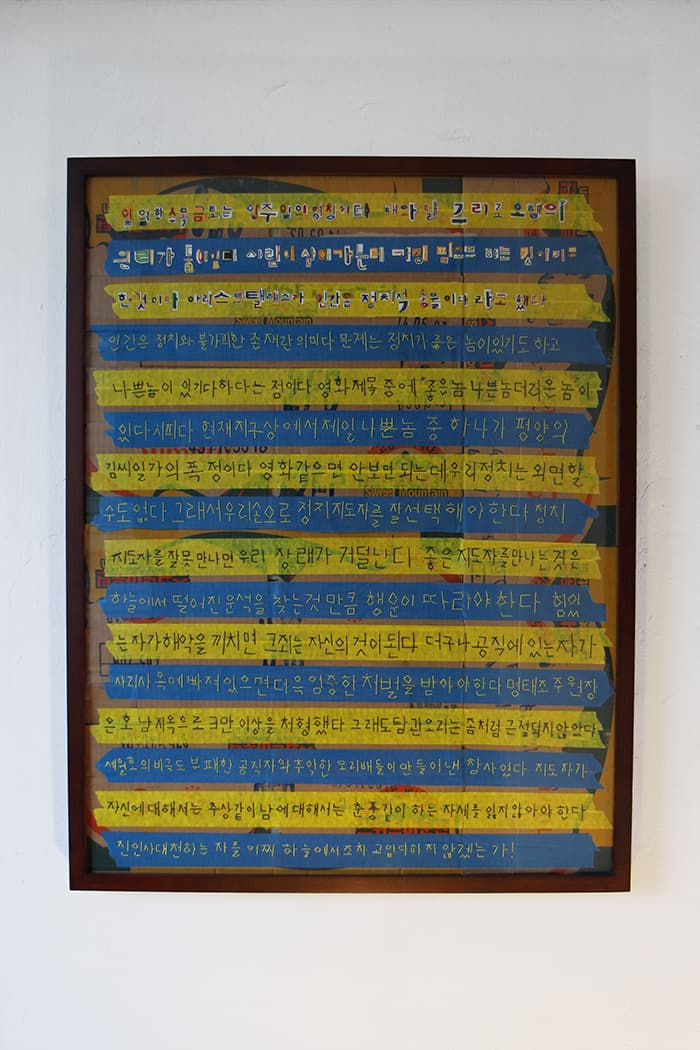 일 월 화 수 목 금 토는 일주일의 명칭이다 해와 달 그리고 오행의
원리가 들어있다 사람이 살아가는데 거쳐 필요로 하는 것이기도
한 것이다 아리스토탤레스가 인간은 정치적 동물이다 라고 했다
인간은 정치와 불가피한 존재란 의미다 문제는 정치가 좋은 놈이 있기도 하고
나쁜놈이 있기다하다는 점이다 영화제목 중에 좋은놈 나쁜놈 더러운 놈이
있다시피다 현재 지구상에서 제일 나쁜놈 중 하나가 평양의
김씨일가의 폭정이다 영화같으면 안보면 되는데 우리정치는 외면할
수도 없다 그래서 우리손으로 정치지도자를 잘 선택해야 한다 정치
지도자를 잘못 만나면 우리 장래가 거덜난다 좋은 지도자를 만나는 것은
하늘에서 떨어진 운석을 찾는것 만큼 행운이 따라야 한다 힘있
는 자가 해악을 끼치면 그죄는 자신의 것이 된다 더구나 공직에 있는 자가
사리사욕에 빠져있으면 더욱 엄중한 처벌을 받아야 한다 명태조 주원장
은 혹 남지옥으로 3만 이상을 처형했다 그래도 탐관오리는 좀처럼 근절되지 않았다
세월호의 비극도 부패한 공직자와 추악한 모리배들이 만들어 낸 참사였다 지도자가
자신에 대해서는 추상같이 남에 대해서는 춘풍같이 하는 자세를 잃지 않아야 한다
진인사대천하는 자를 어찌 하늘에서조차 고압다하지 않겠는가!
Sweet Mountain
Sweet Mountain